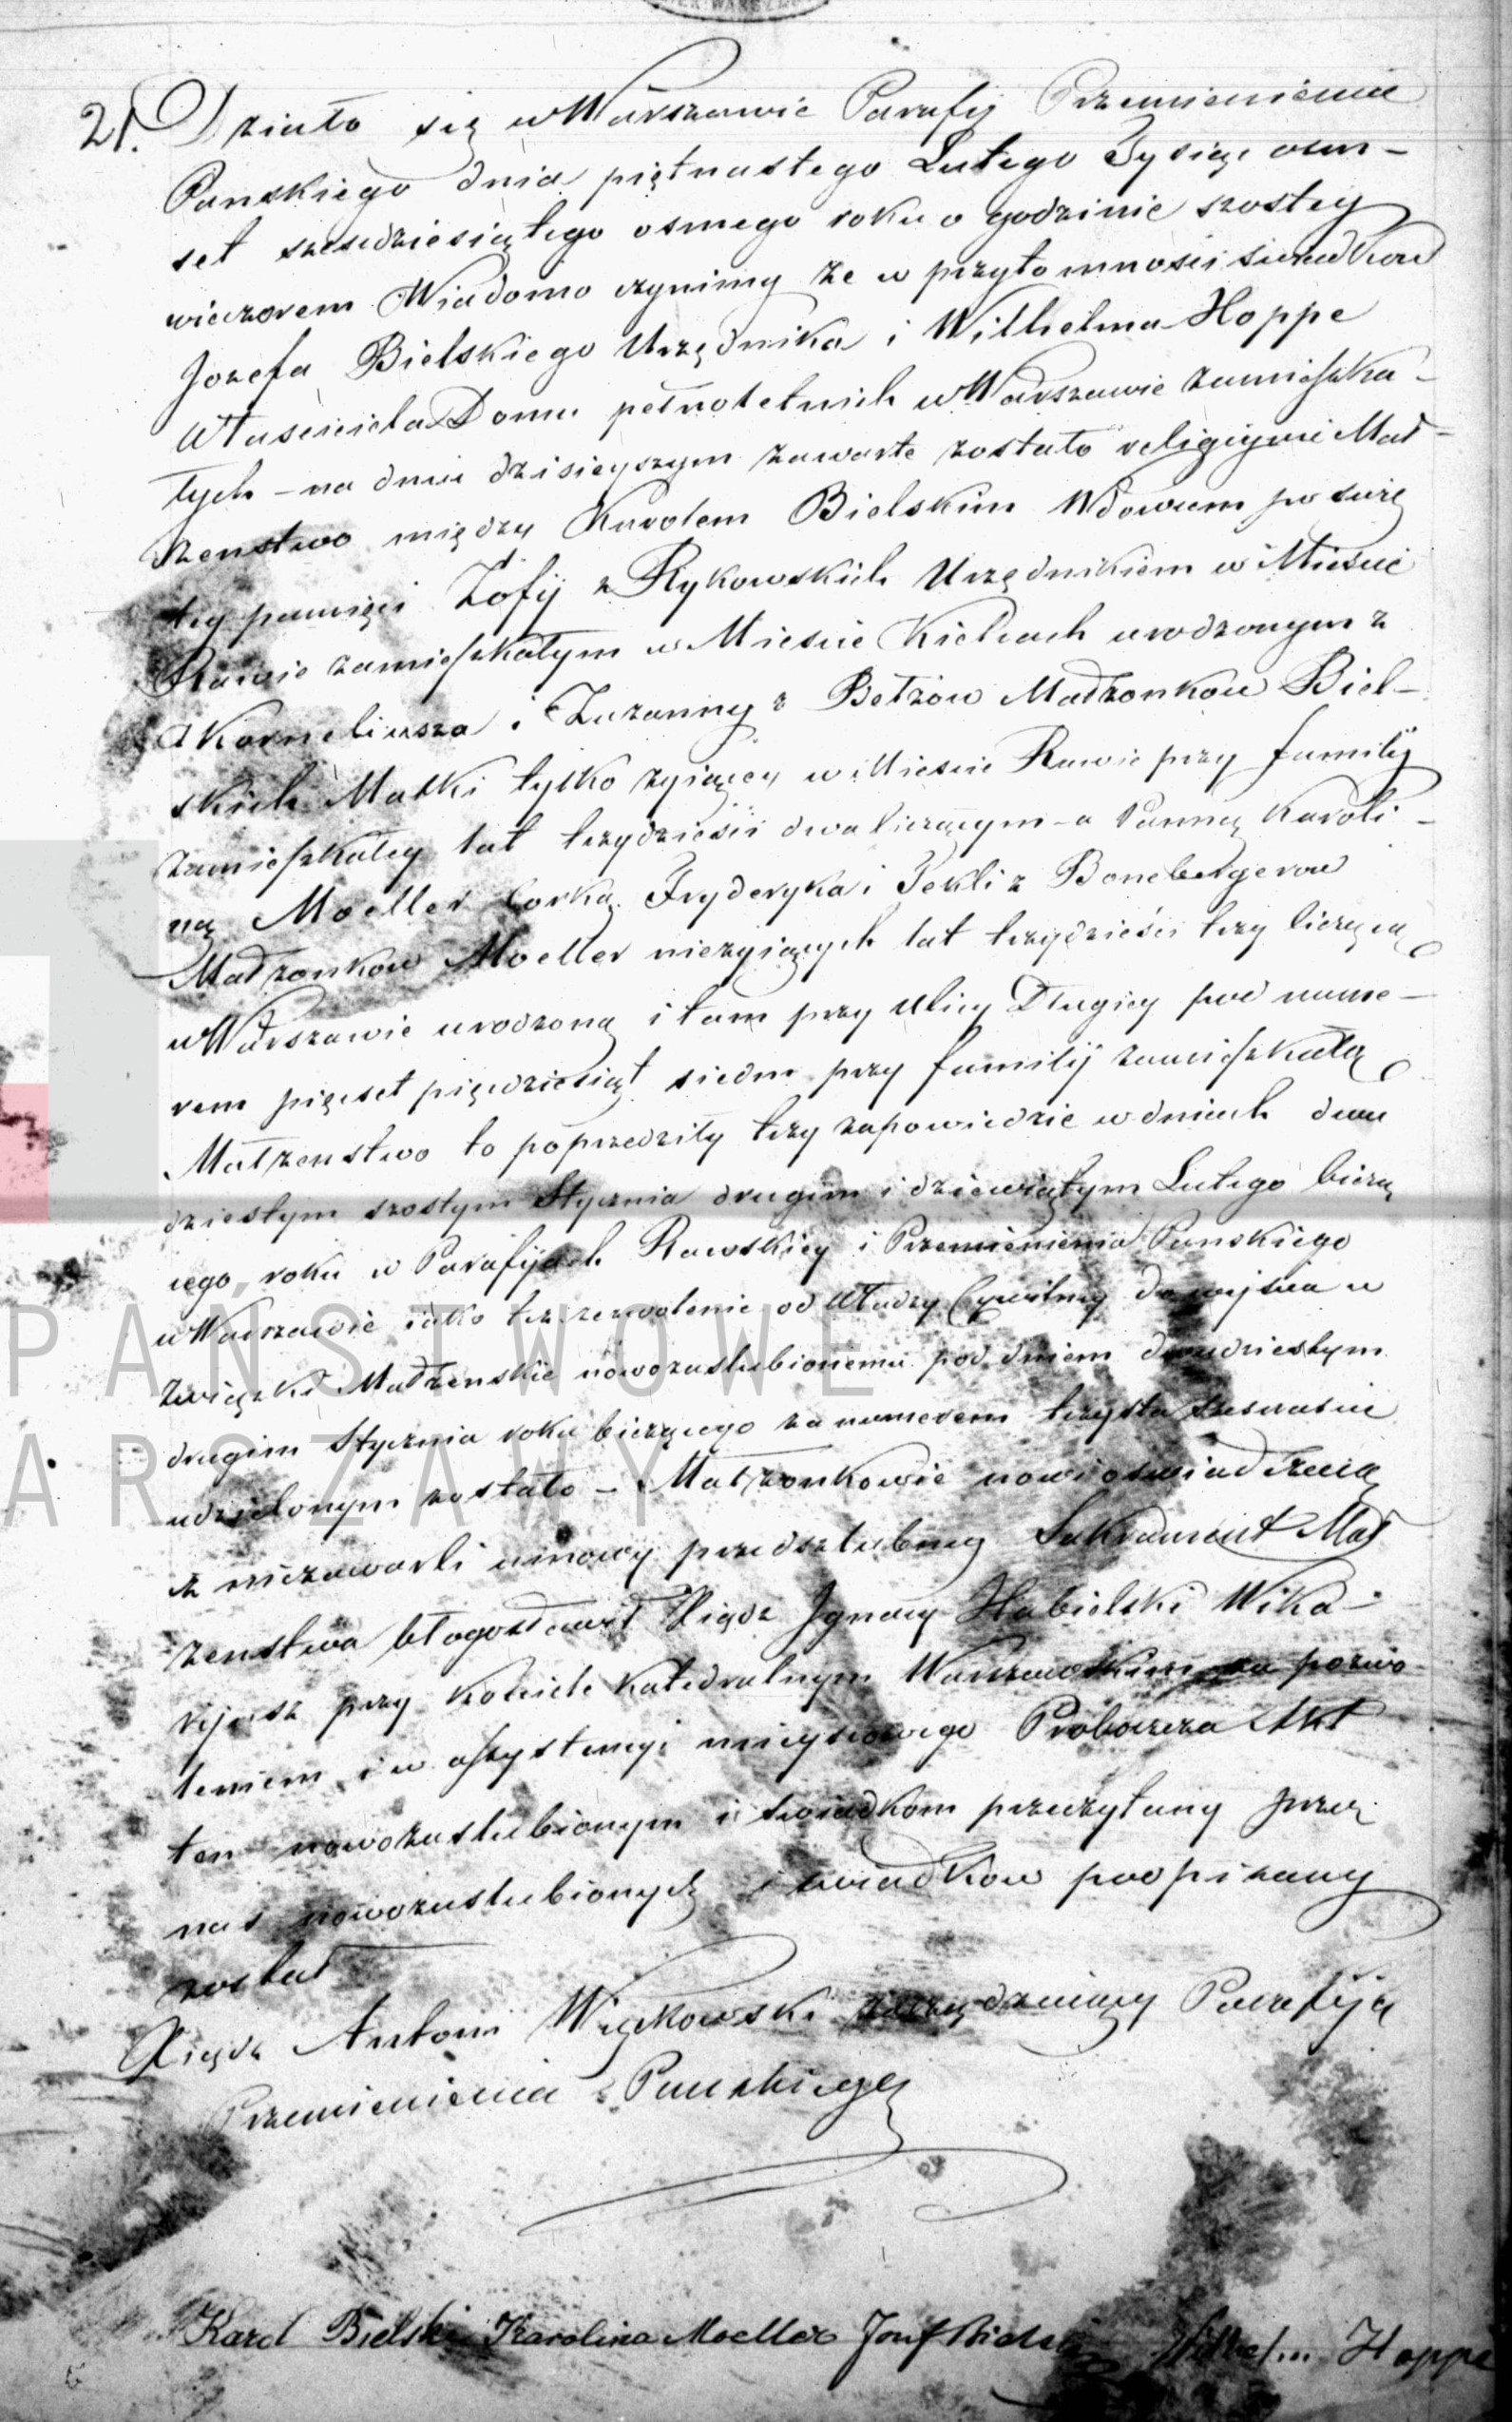 21. Działo się w Warszawie Parafij Przemienienia
Panskiego dnia piętnastego Lutego Tysiąc osm-
set szescdziesiątego osmego roku o godzinie szostey
wieczorem Wiadomo czynimy że w przytomnosci swiadkow
Jozefa Bielskiego Urzędnika i Wilhelma Hoppe
Własciciela Domu pełnoletnich w Warszawie zamieszka-
łych – na dniu dzisieyszym zawarte zostało religijne Mał-
żenstwo między Karolem Bielskim Wdowcem po swię
tey pamięci Zofij z Rykowskich Urzędnikiem w Miescie
Rawie zamieszkałym w Miescie Kielcach urodzonym z
Korneliusza i Zuzanny z Betzow Małżonkow Biel-
skich Matki tylko żyiącey w Miescie Rawie przy familij
zamieszkałey lat trzydziesci dwa liczącym – a Panną Karoli-
ną Moeller Corką Fryderyka i Tekli z Bonebergerow
Małżonkow Moeller nieżyiących lat trzydzieści trzy liczącą
w Warszawie urodzoną i tam przy Ulicy Długiey pod nume-
rem pięcset pięcdziesiąt siedm przy familij zamieszkałą
Małżenstwo to poprzedziły trzy zapowiedzie w dniach dwu
dziestym szostym Stycznia drugim i dziewiątym Lutego bieżą
cego roku w Parafijach Rawskiey i Przemienienia Panskiego
w Warszawie iako też zezwolenie od Władzy Cywilney do wejscia w
związki Małżenskie nowozaslubionemu pod dniem dwudziestym
drugim Stycznia roku bieżącego za numerem trzysta szesnascie
udzielonym zostało – Małżonkowie nowi oswiadczaią
iż niezawarli umowy przedszlubney Sakrament Mał
żenstwa błogosławił Xiądz Ignacy Habielski Wika-
ryusz przy Kosciele Katedralnym Warszawskim za pozwo
leniem i w assystencyi mieyscowego Proboszcza Akt
ten nowozaslubionym i swiadkom przeczytany przez
nas nowozaslubionych i swiadkow podpisany
został
Xiądz Antoni Więckowski zarządzaiący Parafiją
Przemienienia Panskiego
Karol Bielski Karolina Moeller Józef Bielski Wilhelm Hoppe
PAŃSTWOWE
ARSZAWY